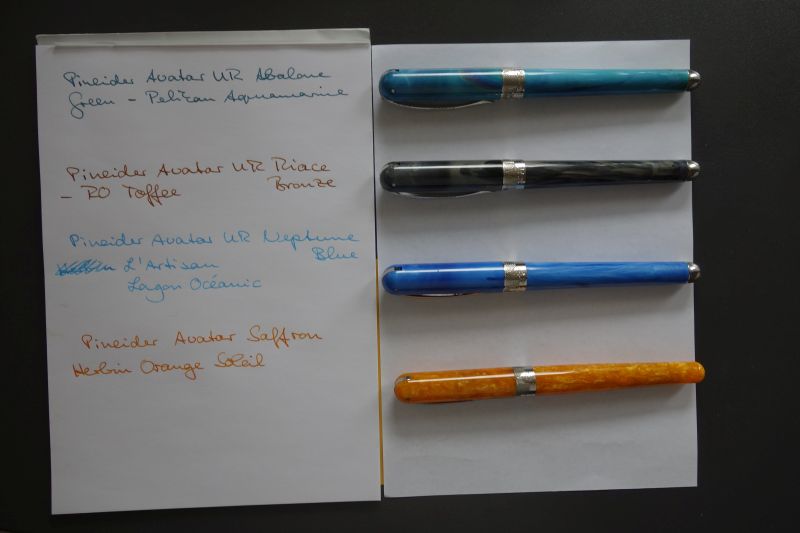 Pineider Avatar UR Abalone
Green - Pelikan Aquamarine
Pineider Avatar UR Riace
Bronze
- RO Toffee
Pineider Avatar UR Neptune
Blue
L'Artisan
Lagon Océanic
Pineider Avatar Saffron
Herbin Orange Soleil